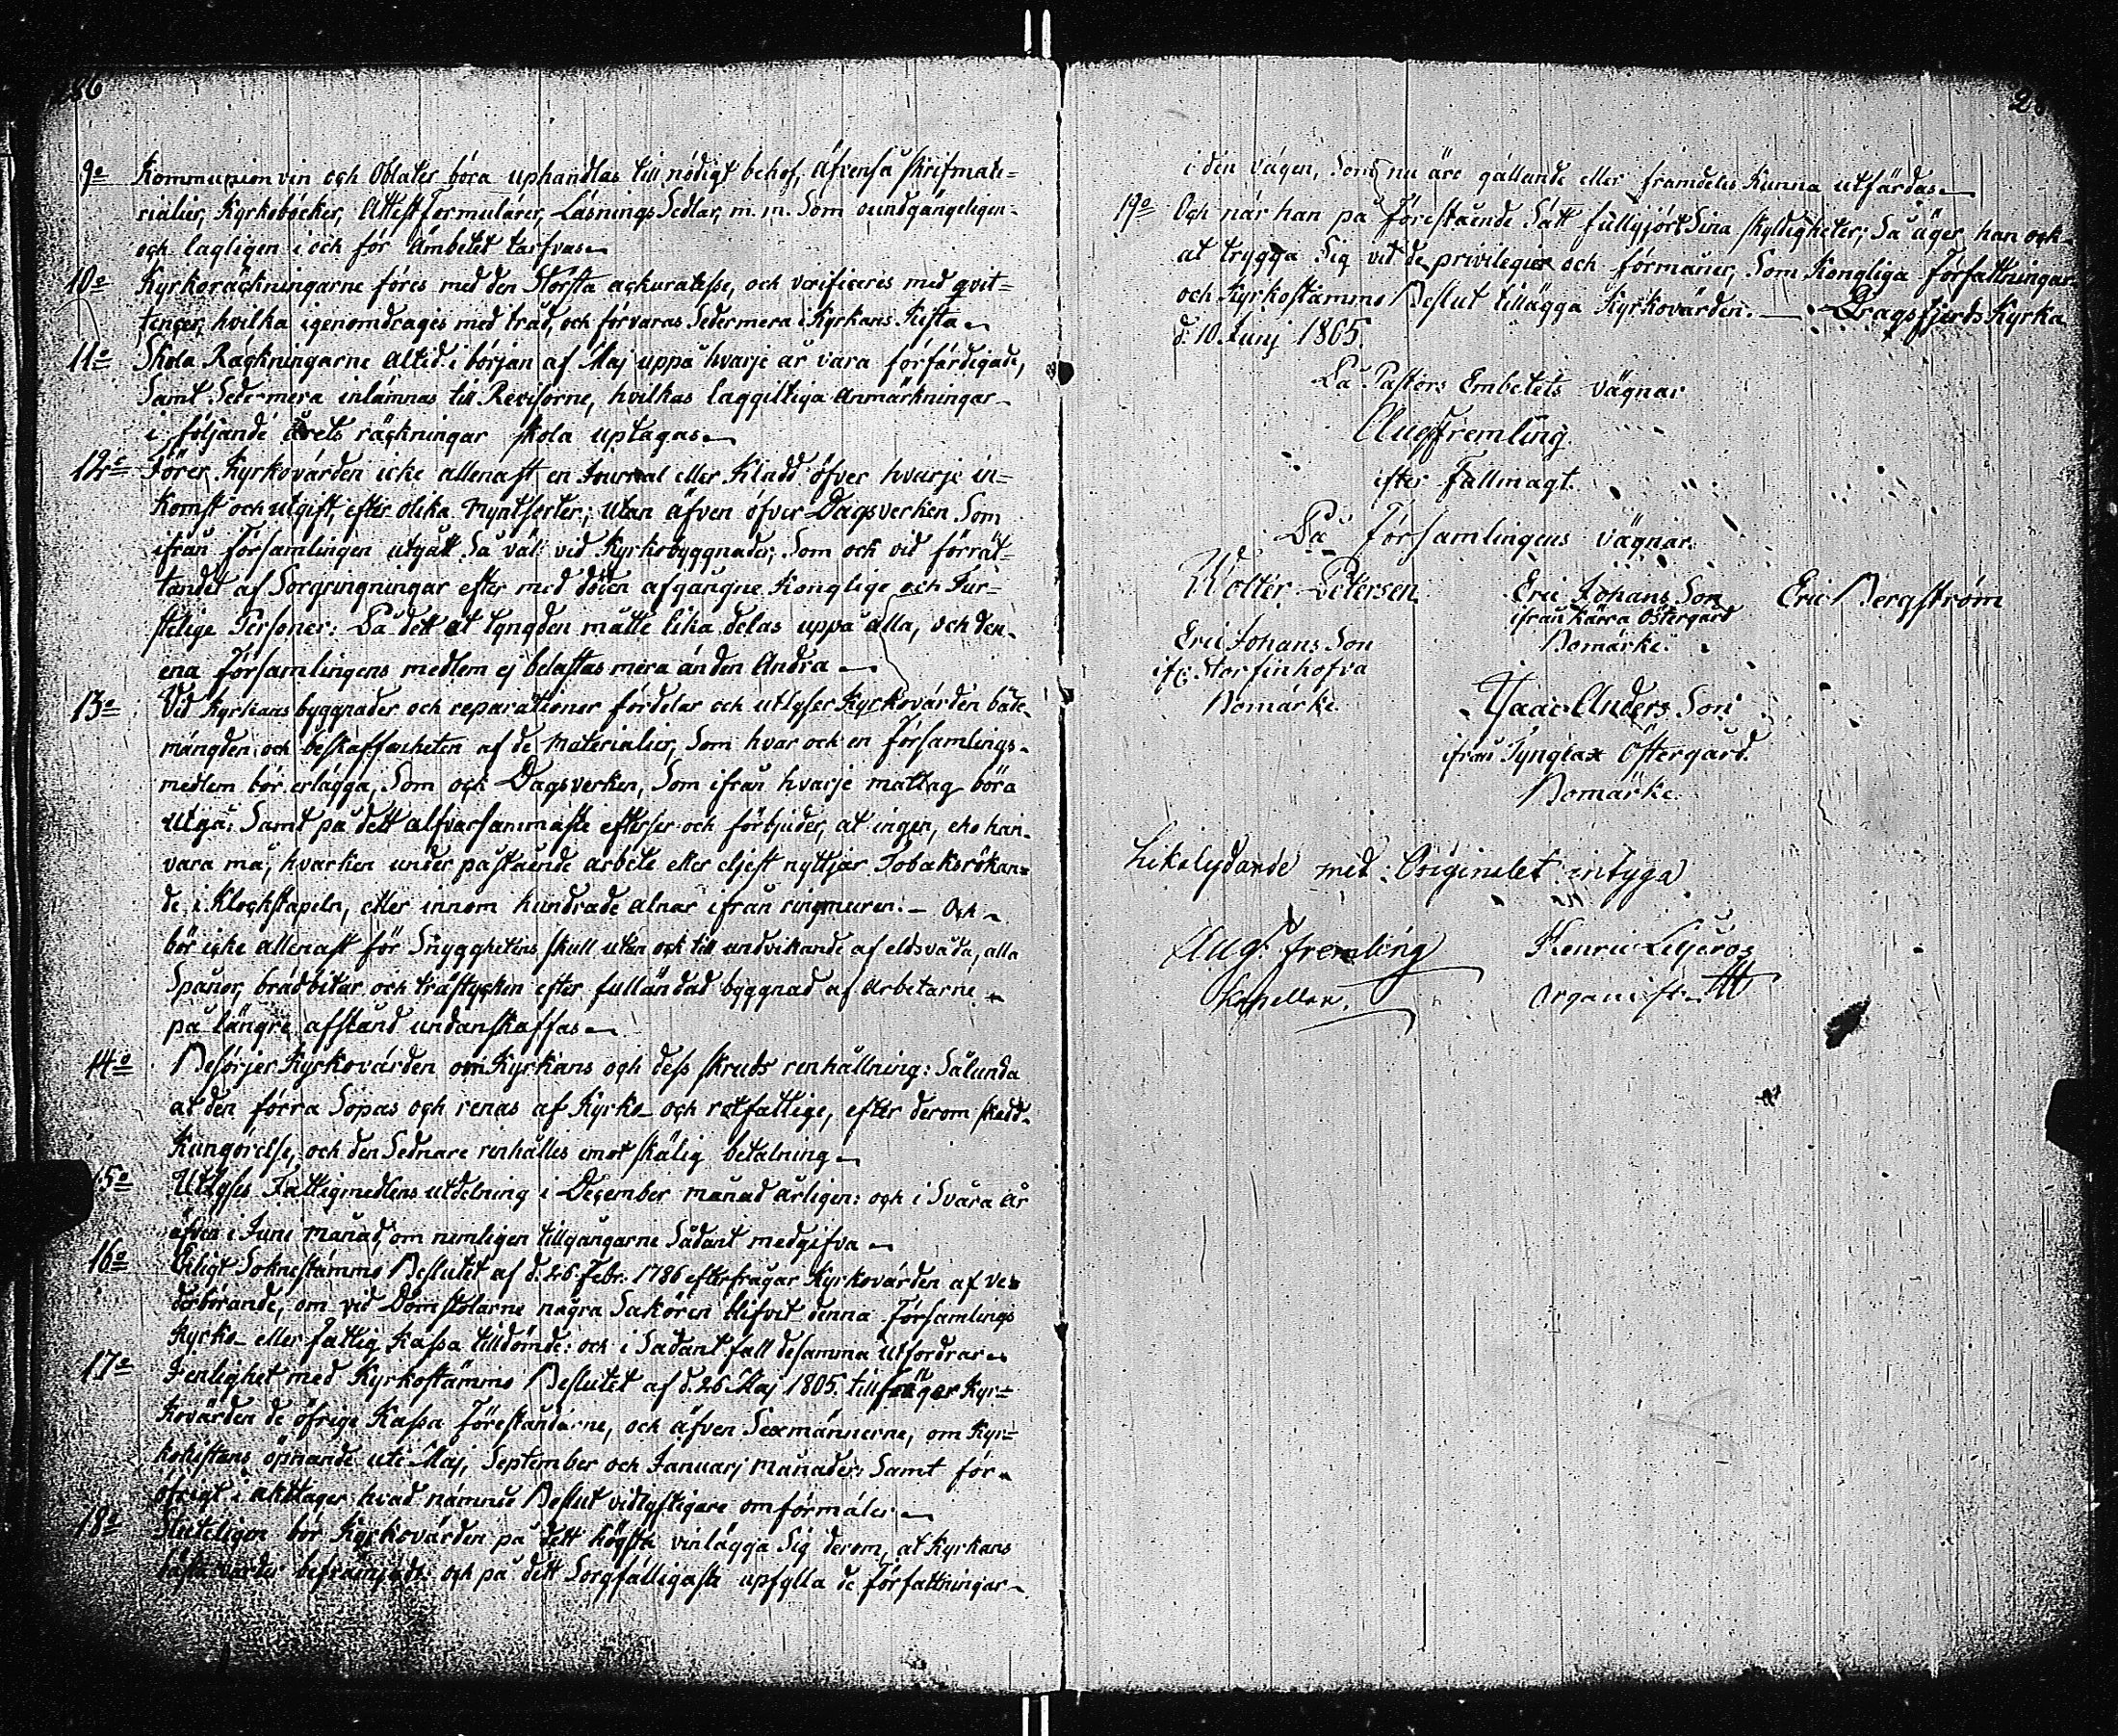 9o Kommunion vin och Oblater böra uphandlas till nödigt behof, äfvensa skrifmate=
rialier, Kyrkoböcker, Attest formulärer, Läsnings Sedlar, m. m. Som oundgängeligen
och lagligen i och för Ämbetet tarfvas
10o Kyrkoräckningarne föres med den Största ackuratesse, och verificeres med qvit=
tencer, hvilka igenomdrages med tråd, och förvaras Sedermera i Kyrkans Kista
11o Skola Räckningarne altid i början af Maj uppå hvarje år vara förfärdigade,
Samt Sedermera inlämnas till Revisorne, hvilkas laggiltiga Anmärkningar
i följande årets räckningar skola uptagas
12o Förer Kyrkovärden icke allenast en Journal eller Kladd öfver hvarje in=
komst och utgift, efter olika Myntsorter; utan äfven öfver Dagsverken Som
ifrån Församlingen utgått Så väl vid Kyrkobyggnader, Som ock vid förrät=
tandet af Sorgringningar efter med döden afgångne Konglige och Fur=
stelige Personer: På dett at tyngden måtte lika delas uppå alla, och den
ena Församlingens medlem ej belastas mera än den Andra
13o Vid Kyrkans byggnader och reparationer fördelar och utlyser Kyrkovärden både
mängden och beskaffenheten af de Materialier, Som hvar och en Församlings
medlem bör erlägga, Som ock Dagsverken, Som ifrån hvarje matlag böra
utgå: Samt på dett alfvarsammaste efterser och förbjuder, at ingen, eho han
vara må, hvarken under påstående arbete eller eljest nyttjar Tobaksrökan=
de i Klockstapeln, eller innom hundrade alnar ifrån ringmuren. Och
bör icke allenast för Snygghetens skull utan ock till undvikande af eldsvåda, alla
Spånor, brädbitar och trästycken efter fulländad byggnad af Arbetarne
på längre afstånd undanskaffas
14o Besörjer Kyrkovärden om Kyrkans och dess skruds renhållning: Sålunda
at den förra Sopas och renas af Kyrko och rotfattige, efter derom skedd
Kungörelse, och den Sednare renhålles emot skälig betalning
15o Utlyses Fattigmedlens utdelning i December månad årligen: och i Svåra år
äfven i Juni Månad, om nemligen tillgångarne Sådant medgifva
16o Enligt Soknestämmo Beslutet af d. 26. Febr. 1786 efterfrågar Kyrkovärden af ve=
derbörande, om vid Domstolarne några Sakören blifvit denna Församlings
Kyrko eller Fattig Kassa tilldömde: och i Sådant fall desamma utfordrar
17o I enlighet med Kyrkostämmo Beslutet af d. 26 Maj 1805. tillsäger Kyr=
kovärden de öfrige Kassa Föreståndarne, och äfven Sexmännerne, om Kyr=
kokistans öpnande uti Maj, September och Januarj månader: Samt för
öfrigt i akttager hvad nämnde Beslut vidlyftigare omförmäler
18o Sluteligen bör Kyrkovärden på dett högsta vinlägga Sig derom, at Kyrkans
bästa varder befrämjadt: och på dett Sorgfälligaste upfylla de Författningar
i den vägen, Som nu äro gällande eller framdeles Kunna utfärdas
19o Och när han på Förestående Sätt fullgjort Sina Skyldigheter; Så äger han ock
at trygga Sig vid de privilegier och förmåner, Som Kongliga Författningar
och Kyrkostämmo Beslut tillägga Kyrkovärden. Dragsfjerds Kyrka
d. 10. Junj 1805.
På Pastors Embetets vägnar
Aug Fremling
efter Fullmagt.
På Församlingens vägnar:
Wolter Petersen Eric Johans Son Eric Bergström
ifrån Kärra Östergård
Eric Johans Son Bomärke
ifr: Storfinhofva
Bomärke Isaac Anders Son
ifrån Tynglax Östergård.
Bomärke
Likalydande med Originalet intyga
Aug. Fremling Henric Liljeros
Kapellan. Organist